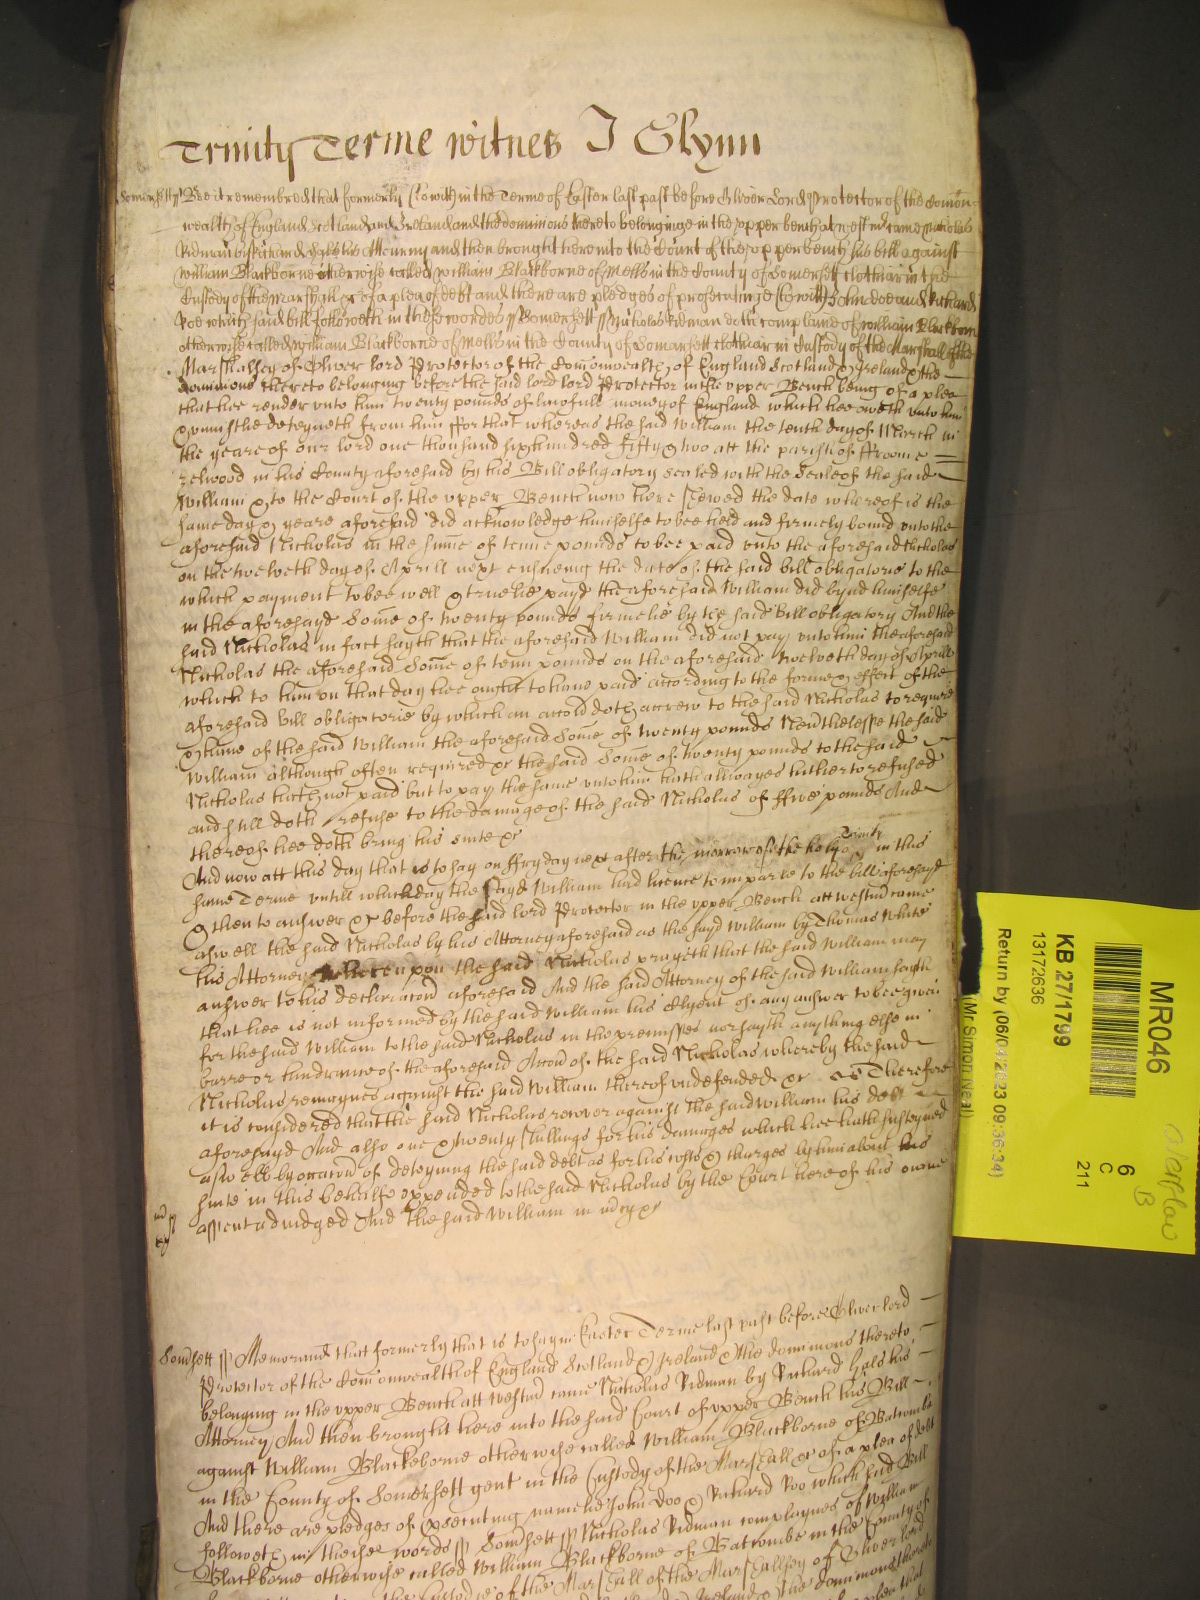 Trinity Terme witnes J Glynn
Somersett ss Bee it remembred that formerly (to witt) in the Terme of Easter last past before Oliver Lord Protector of the Comon
wealth of England Scotland and Ireland and the dominions thereto belonginge in the upper bench at westm came Nicholas
Ridman by Richard Hals his Atturny and then brought here into the Court of the upper bench his bill against
William Blackborne otherwise called William Blackborne of Mells in the County of Somersett Clothiar in the
Custody of the Marshall &c of a plea of debt and there are pledges of prosecutinge (to witt) John doe and Richard
Roe which said bill followeth in these wordes ss Somersett ss Nicholas Ridman doth complaine of William Blackborn
otherwise called William Blackborne of Mells in the County of Somersett Clothiar in Custody of the Marshall of the
Marshallsey of Oliver lord Protector of the Comonwealth of England Scotland & Ireland & the
dominions thereto belonging before the said lord lord Protector in the upper Bench being of a plea
that hee render unto him twenty pounds of lawfull money of England which hee oweth unto him
& uniustlie deteyneth from him ffor that whereas the said William the tenth day of March in
the yeare of our lord one thousand six hundred fifty & two att the parish of ffroome
zelwood in his County aforesaid by his Bill obligatory sealed with the Seale of the said
William & to the Court of the upper Bench now here shewed the date whereof is the
same day & yeare aforesaid did acknowledge himselfe to bee held and firmely bound unto the
aforesaid Nicholas in the sume of tenne pounds to bee paid unto the aforesaid Nicholas
on the twelveth day of Aprill next ensueing the date of the said bill obligatorie to the
which payment to bee well & truelie payd the aforesaid William did bynd himselfe
in the aforesayd Some of twenty pounds firmelie by the said Bill obligatory And the
said Nicholas in fact sayth that the aforesaid William did not pay unto him the aforesaid
Nicholas the aforesaid Some of tenn pounds on the aforesaid twelveth day of Aprill
which to him on that day hee ought to have paid according to the forme & effect of the
aforesaid bill obligatorie by which an accon doth accrew to the said Nicholas to require
& have of the said William the aforesaid Some of twenty pounds Neverthelesse the said
William although often required &c the said Some of twenty pounds to the said
Nicholas hath not paid but to pay the same unto him hath allwayes hitherto refused
and still doth refuse to the damage of the said Nicholas of ffive pounds And
thereof hee doth bring his suite &c
And now att this day that is to say on ffryday next after the morrow of the holy Trinity in this
same Terme untill which day the sayd William had licence to imparle to the bill aforesayd
& then to answer &c before the said lord Protector in the upper Bench att westm came
aswell the said Nicholas by his Attorney aforesaid as the sayd William by Thomas White
his Attorney Whereupon the said Nicholas prayeth that the said William may
answer to his declaracon aforesaid And the said Attorney of the said William sayth
that hee is not informed by the said William his Clyent of any answer to bee given
for the said William to the said Nicholas in the premisses nor sayth anything else in
barre or hindrance of the aforesaid Accon of the said Nicholas whereby the said
Nicholas remaynes against the said William thereof undefended &c Therefore
it is considered that the said Nicholas recover against the said William his debt
aforesayd And also one & twenty shillings for his damages which hee hath susteyned
aswell by occasion of deteyning the said debt as for his costs & charges by him about his
suite in this behalfe expended to the said Nicholas by the Court here of his owne
assent adiudged And the said William in mcy &c
Somsett ss Memorand that formerly that is to say in Easter Terme last past before Oliver lord
Protector of the Comonwealth of England Scotland & Ireland & the dominions thereto
belonging in the upper Bench att westm came Nicholas Ridman by Richard Hals his
Attorney And then brought here into the said Court of upper Bench his Bill
against William Blackeborne otherwise called William Blackborne of Batcombe
in the County of Somersett gent in the Custody of the Marshall &c of a plea of debt
And there are pledges of prsecuting namelie John Doo & Richard Roo which said Bill
followeth in theise words ss Somsett ss Nicholas Ridman complaynes of William
Blackborne otherwise called William Blackborne of Batcombe in the County of
the Custodie of the Marshall of the Marshallsey of Oliver lord
Ireland & the dominions thereto
plea that
MR046
KB 27/1799
13172636
Return by (06/04/2023 09:36:34)
(Mr Simon Neal)
6
C
211
Overflow
B